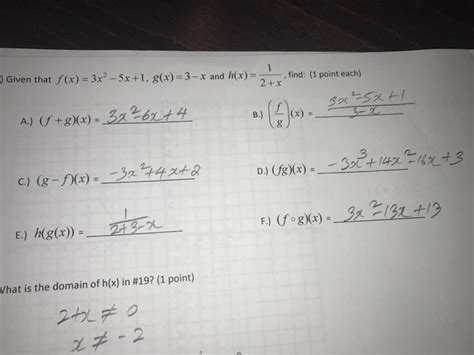 ) Given that f(x) = 3x² − 5x + 1, g(x) = 3 − x and h(x) = 1/(2 + x), find: (1 point each)
A.) (f + g)(x) = 3x² − 6x + 4
B.) (f/g)(x) = (3x² − 5x + 1)/(3 − x)
C.) (g − f)(x) = −3x² + 4x + 2
D.) (fg)(x) = −3x³ + 14x² − 16x + 3
E.) h(g(x)) = 1/(2 + 3 − x)
F.) (f ∘ g)(x) = 3x² − 13x + 13
What is the domain of h(x) in #19? (1 point)
2 + x ≠ 0
x ≠ −2